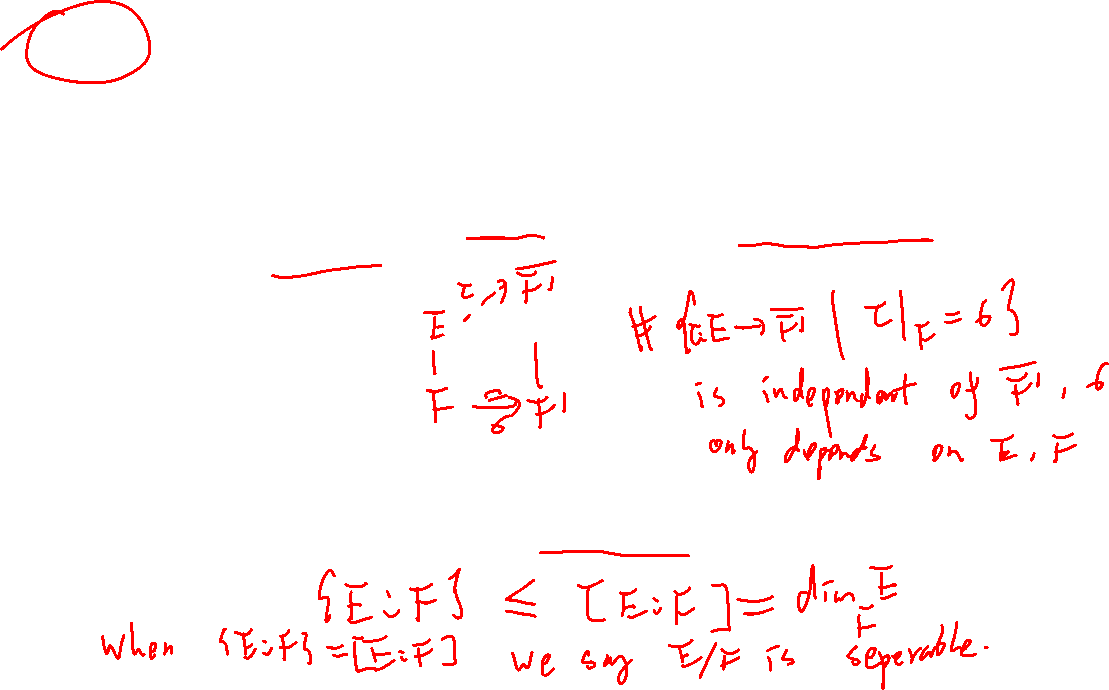 τ → F̄'
E
# {τ:E → F̄' | τ|_F = σ}
F →~ σ F'
is independant of F̄', σ
only depends on E, F
{E:F} ≤ [E:F] = dim_F E
when {E:F} = [E:F] we say E/F is seperable.